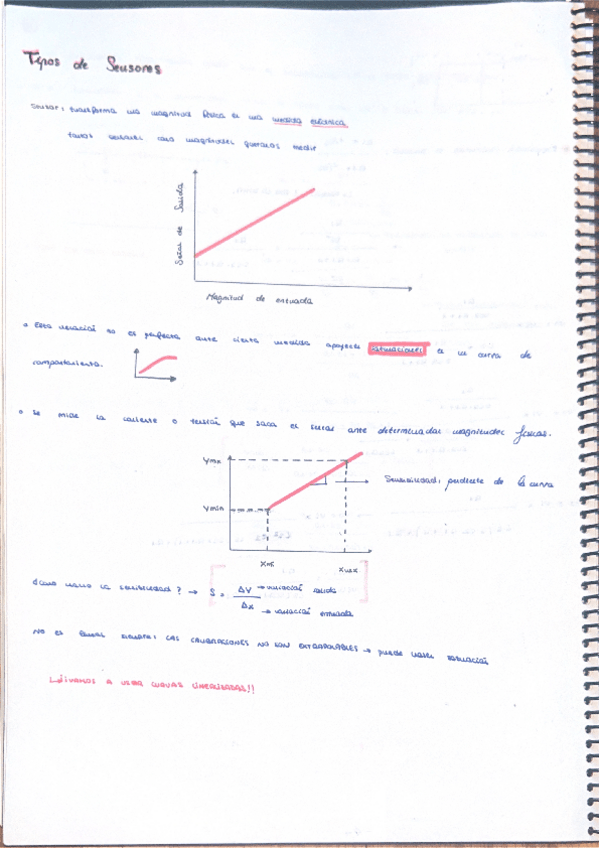 Tipos de Sensores
Sensor: transforma una magnitud física en una medida eléctrica
tantos sensores como magnitudes queramos medir
Señal de Salida
Magnitud de entrada
Esta variación no es perfecta ante cierta medida aparecen saturaciones en la curva de
comportamiento.
Se mide la corriente o tensión que saca el sensor ante determinadas magnitudes físicas.
Ymax
Sensibilidad: pendiente de la curva
Ymin
Xmin
Xmax
¿Cómo la sensibilidad? → S = ΔY → variación salida
Δx → variación entrada
NO es lineal siempre: LAS CALIBRACIONES NO SON EXTRAPOLABLES → puede haber saturación
VAMOS A USAR CURVAS LINEALIZADAS!!